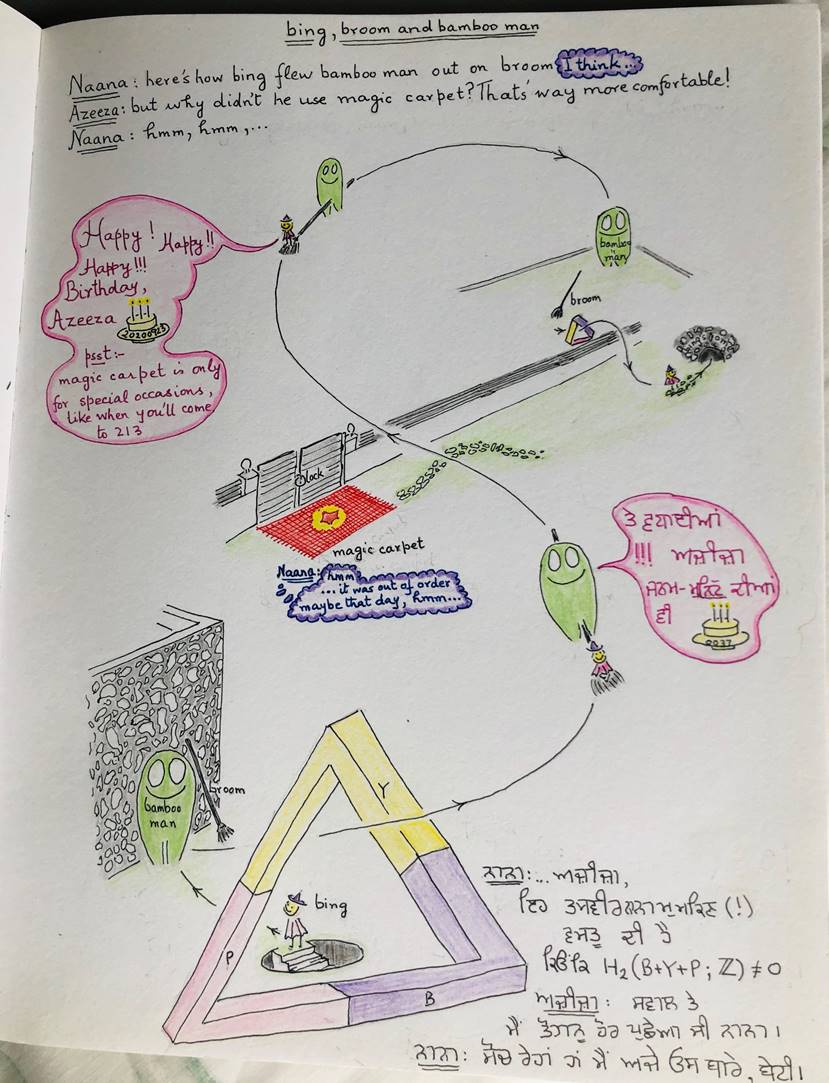 bing, broom and bamboo man
Naana: here's how bing flew bamboo man out on broom I think...
Azeeza: but why didn't he use magic carpet? That's way more comfortable!
Naana: hmm, hmm,...
Happy! Happy!!
Happy!!!
Birthday,
Azeeza
20200923
psst:-
magic carpet is only
for special occasions,
like when you'll come
to 213
bamboo
man
broom
lock
magic carpet
Naana: hmm
... it was out of order
maybe that day, hmm...
ਤੇ ਵਧਾਈਆਂ
!!! ਅਜ਼ੀਜ਼ਾ
ਜਨਮ- ਦੀਆਂ
ਵੀ
bamboo
man
broom
Y
P
B
bing
ਨਾਨਾ:... ਅਜ਼ੀਜ਼ਾ,
ਇਹ (!)
ਦੀ ਹੈ
ਕਿਉਂਕਿ H₂(B+Y+P; ℤ) ≠ 0
ਅਜ਼ੀਜ਼ਾ: ਸਵਾਲ ਤੇ
ਮੈਂ ਹੋਰ ਪੁਛਿਆ ਸੀ ਨਾਨਾ।
ਨਾਨਾ: ਮੈਂ ਅਜੇ ਉਸ ਬਾਰੇ, ਬੇਟੀ।